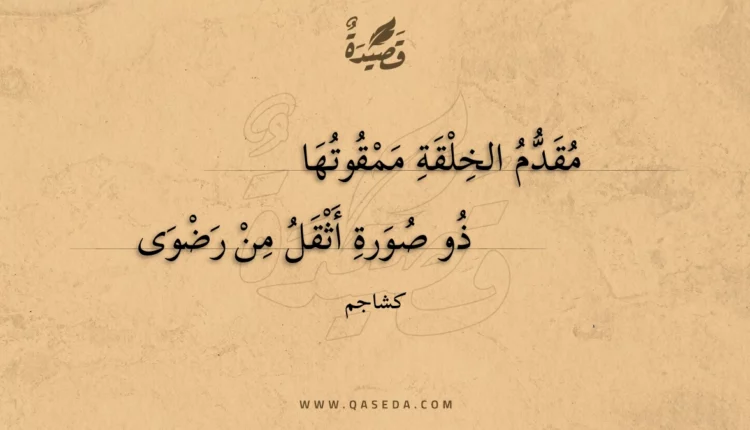 قَصِيدَةٌ
مُقَدُّمُ الخِلْقَةِ مَمْقُوتُهَا
ذُو صُوَرةِ أَثْقَلُ مِنْ رَضْوَى
كشاجم
WWW.QASEDA.COM